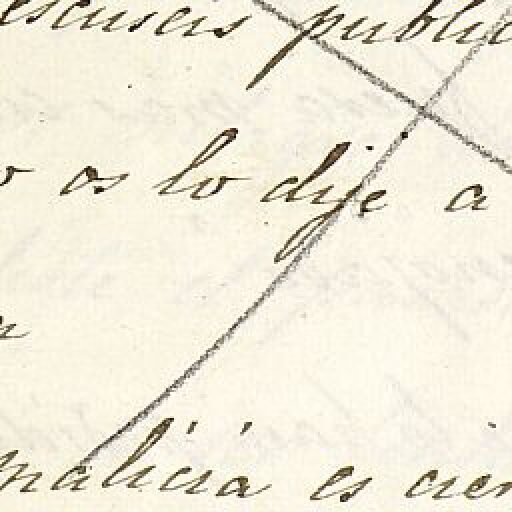 escuseis public
o os lo dije a
malicia es cien